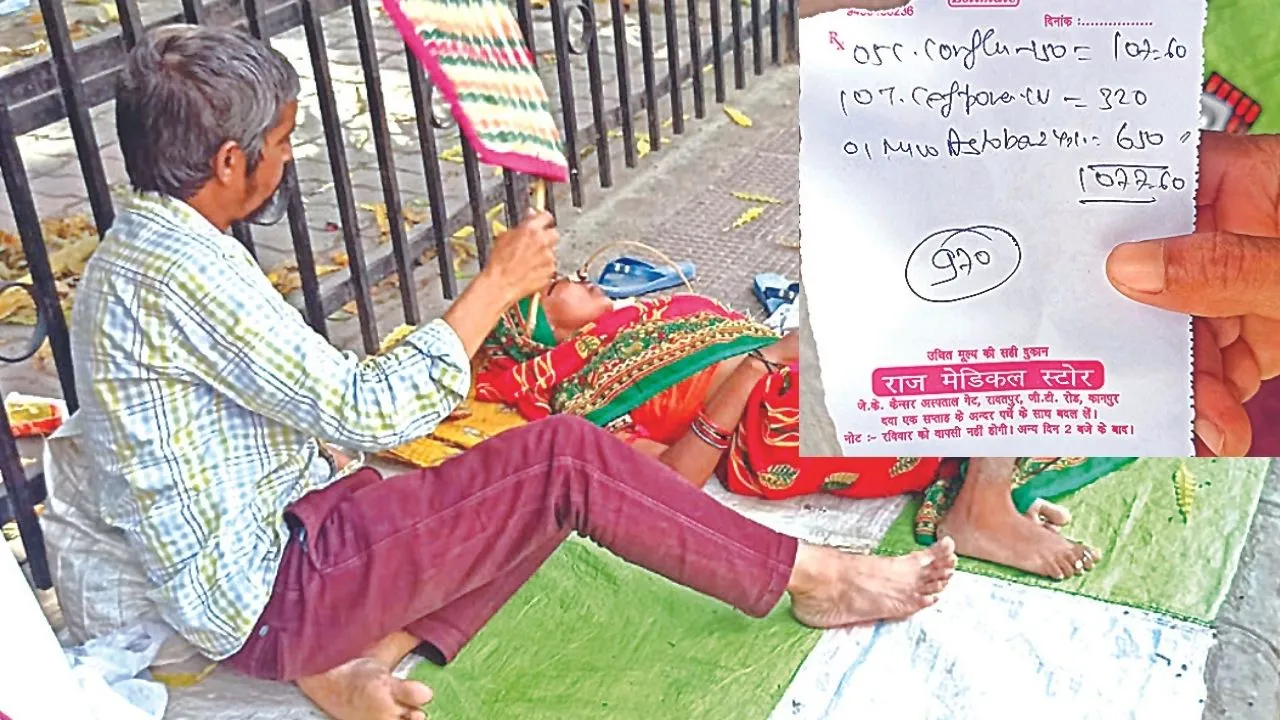 9450130236
Estimate
दिनांक :................
Rx
05 C. Conflu-150 = 107=60
10 T. Cefpova-CV - 320
01 = 650 "
1077=60
970
उचित मूल्य की सही दुकान
राज मेडिकल स्टोर
जे.के. कैन्सर अस्पताल गेट, रावतपुर, जी.टी. रोड, कानपुर
दवा एक सप्ताह के अन्दर पर्चे के साथ बदल लें।
नोट :- रविवार को वापसी नहीं होगी। अन्य दिन 2 बजे के बाद।